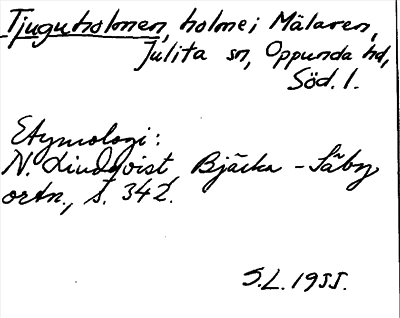 Tjuguholmen, holme i Mälaren,
Julita sn, Oppunda hd,
Söd. l.
Etymologi:
N. Lindqvist, Bjärka-Säby
ortn., s. 342.
S.L. 1955.